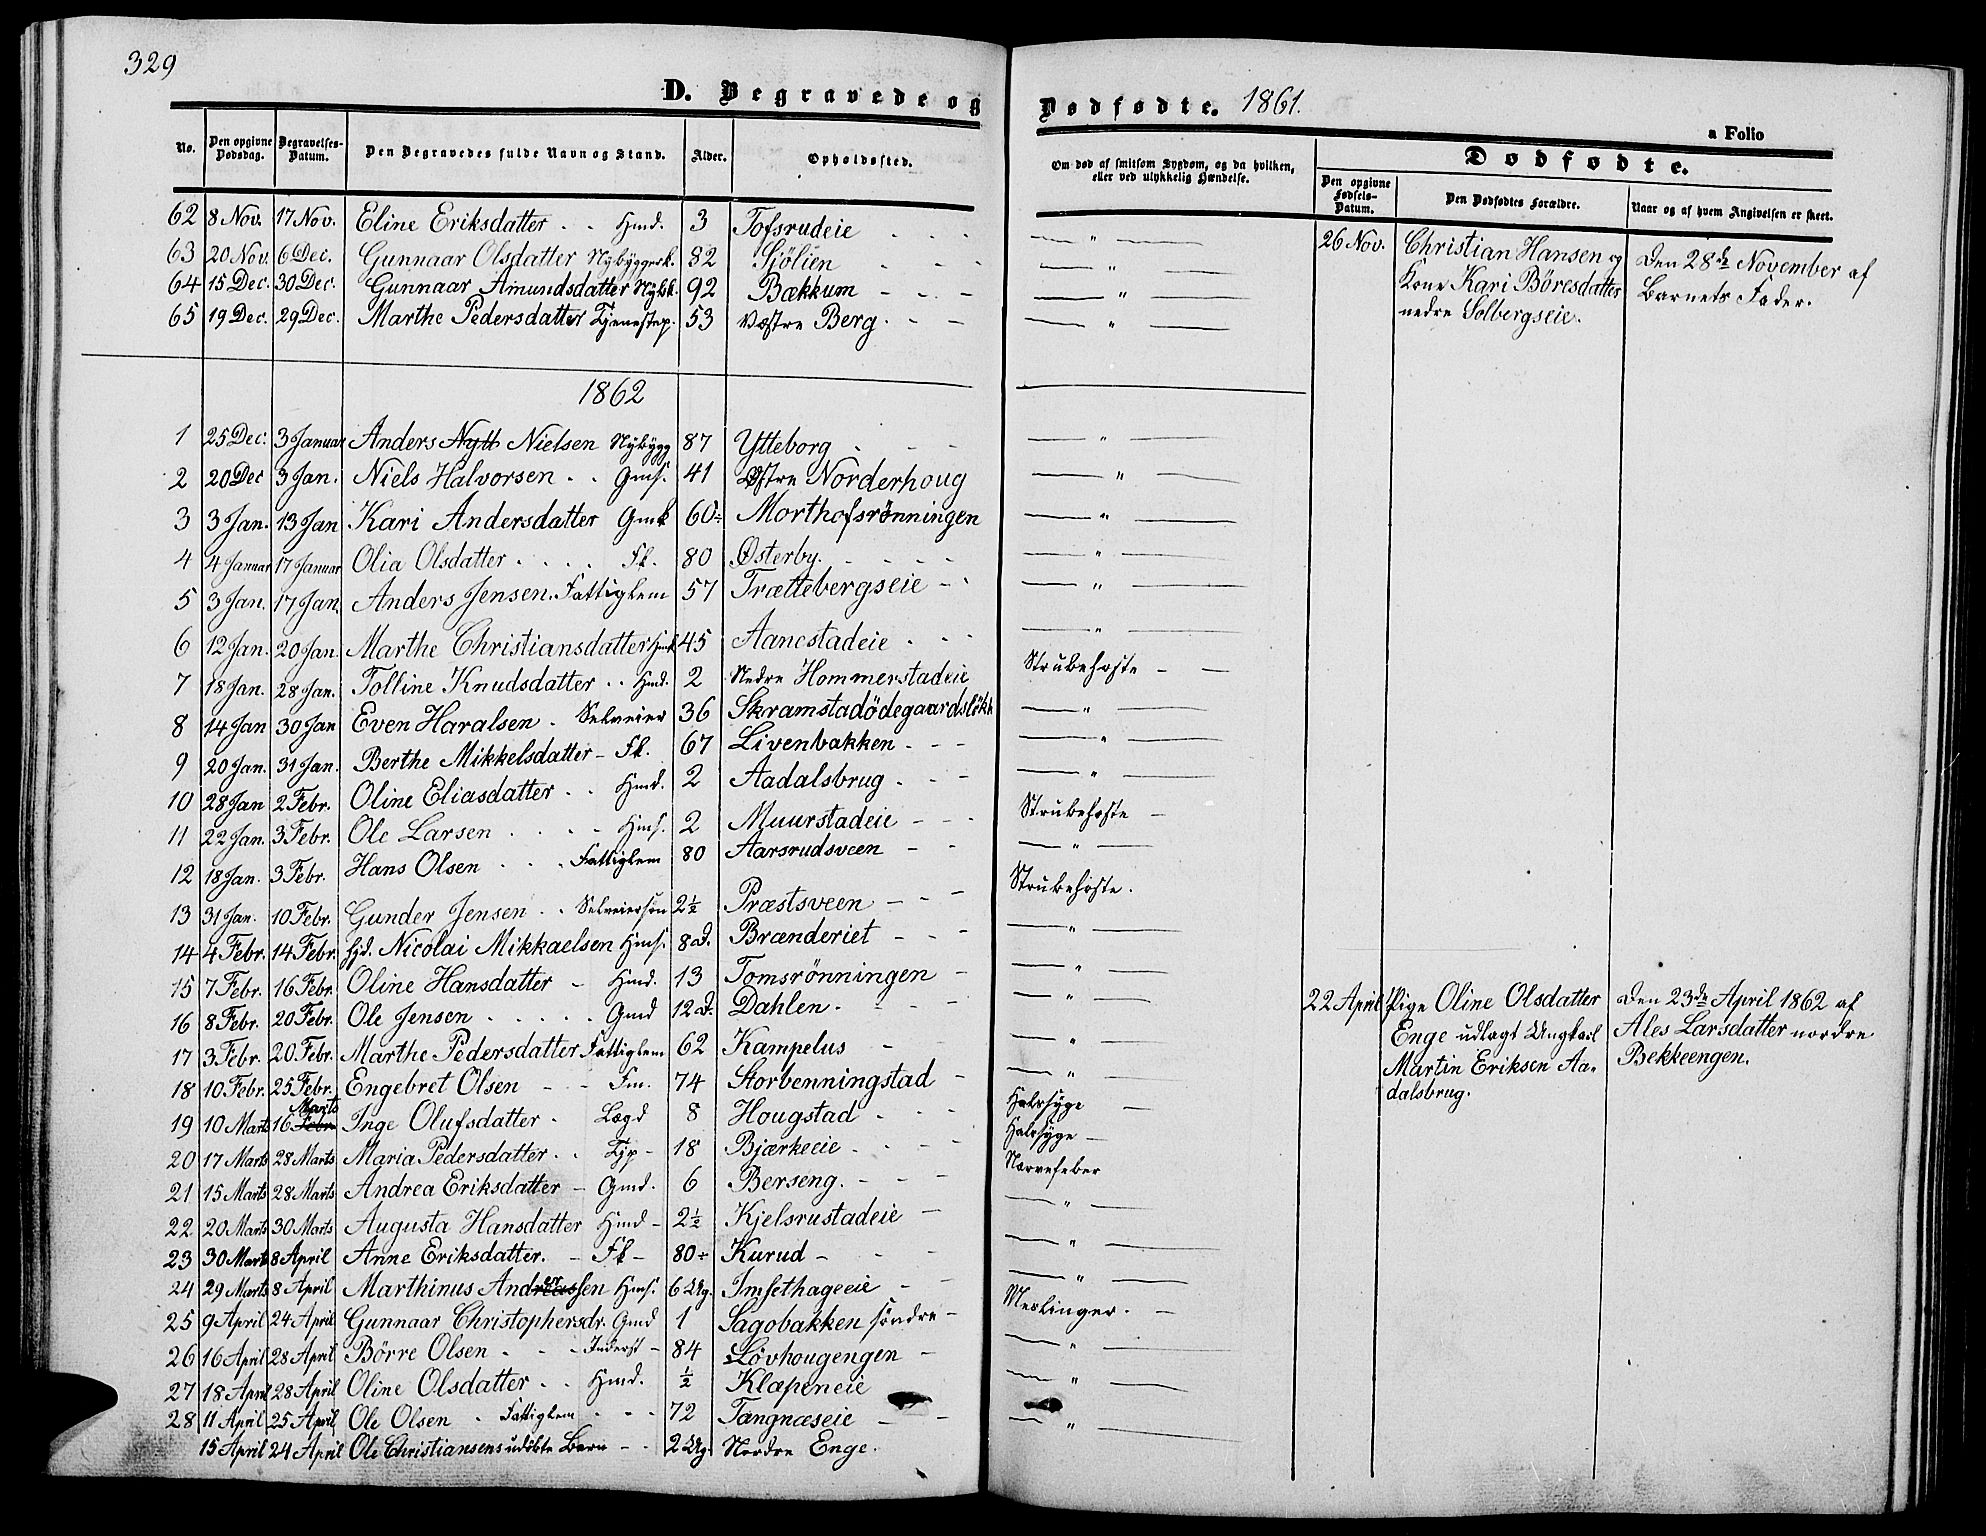 329
D. Begravede og Dødfødte. 1861.
a Folio
No. Den opgivne Dødsdag. Begravelses-Datum. Den Begravedes fulde Navn og Stand. Alder. Opholdssted. Om død af smitsom Sygdom, og da hvilken, eller ved ulykkelig Hændelse.
Dødfødte.
Den opgivne Fødsels-Datum. Den Dødfødtes Forældre. Naar og af hvem Angivelsen er skeet.
62 8 Nov. 17 Nov. Eline Eriksdatter . . Hmd. 3 Tofsrudeie - - - — " —
63 20 Nov. 6 Dec. Gunnaar Olsdatter Nybyggerk. 82 Sjölien - - - — " —
64 15 Dec. 30 Dec. Gunnaar Amundsdatter Nybk. 92 Bækkum - - - — " —
65 19 Dec. 29 Dec. Marthe Pedersdatter Tjenestep. 53 Vestre Berg - - - — " —
26 Nov. Christian Hansen og
Kone Kari Börresdatter
nedre Solbergseie.
Den 28de November af
Barnets Fader.
1862
1 25 Dec. 3 Januar Anders Nytt Nielsen Nybygg 87 Ytteborg - - — " —
2 20 Dec 3 Jan. Niels Halvorsen . . Gms. 41 Østre Norderhoug — " —
3 3 Jan. 13 Jan Kari Andersdatter Gmk 60÷ Morthofsrønningen — " —
4 4 Januar 17 Januar Olia Olsdatter . . . . Fk. 80 Østerby. - - - - — " —
5 3 Jan. 17 Jan. Anders Jensen. Fattiglem 57 Trættebergseie - - — " —
6 12 Jan. 20 Jan. Marthe Christiansdatter Hmk 45 Aanestadeie - - - — " —
7 18 Jan. 28 Jan. Tolline Knudsdatter . . Hmd. 2 Nedre Hommerstadeie Strubehoste - -
8 14 Jan 30 Jan Even Haralsen . Selveier 36 Skramstadödegaardslökk — " —
9 20 Jan. 31 Jan. Berthe Mikkelsdatter - Fk. 67 Livenbakken - - - — " —
10 28 Jan 2 Febr. Oline Eliasdatter . . Hmd. 2 Aadalsbrug - - - — " —
11 22 Jan. 3 Febr. Ole Larsen . . . . Hms. 2 Muurstadeie - - - Strubehoste -
12 18 Jan. 3 Febr. Hans Olsen . . . Fattiglem 80 Aarsrudsveen - - — " —
13 31 Jan. 10 Febr. Gunder Jensen . . Selveiersön 2½ Præstsveen - - - Strubehoste.
14 4 Febr. 14 Febr. hjd. Nicolai Mikkaelsen Hms. 8 d. Brænderiet - - - — " —
15 7 Febr. 16 Febr. Oline Hansdatter - Hmd. 13 Tomsrönningen - — " —
16 8 Febr. 20 Febr. Ole Jensen . . . . . Gmd 12 d. Dahlen. - - - — " —
17 3 Febr. 20 Febr. Marthe Pedersdatter Fattiglem 62 Kampelus - — " —
18 10 Febr. 25 Febr. Engebret Olsen - - Fm. 74 Storbenningstad - — " —
19 10 Marts 16 Febr Marts Inge Olufsdatter - Lægd 8 Hougstad - - - Halssyge -
20 17 Marts 28 Marts Maria Pedersdatter . . Tjp - 18 Bjærkeeie - - - - Halssyge -
21 15 Marts 28 Marts Andrea Eriksdatter - Gmd. 6 Berseng. - - - Nervefeber
22 20 Marts 30 Marts Augusta Hansdatter Hmd - 2½ Kjelsrustadeie - — " —
23 30 Marts 8 April Anne Eriksdatter. - Fk - 80÷ Kurud - - - — " —
24 29 Marts 8 April Marthinus Andreassen er Hms. 6 Ug. Imsethageeie - - — " —
25 9 April 24 April Gunnaar Christophersdr. Gmd 1 Sagobakken söndre - Meslinger. -
26 16 April 28 April Börre Olsen . - - Inderst - 84 Lövhougengen - — " —
27 18 April 28 April Oline Olsdatter . . Hmd. ½ Klæpeneie — " —
28 11 April 25 April Ole Olsen . Fattiglem - - - 72 Tangnæseie - - — " —
15 April 24 April Ole Christiansens udöbte Barn - - 2 Ug. Nordre Enge.
22 April Pige Oline Olsdatter
Enge udlagt Ungkarl
Martin Eriksen Aa-
dalsbrug.
Den 23de April 1862 af
Ales Larsdatter nordre
Bekkeengen.